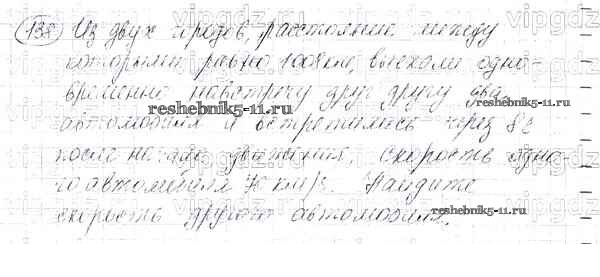 138 Из двух городов, расстояние между
которыми равно 1008 км, выехали одно-
временно навстречу друг другу два
reshebnik5-11.ru
автомобиля и встретились через 8 ч
после начала движения. Скорость одно-
го автомобиля 70 км/ч. Найдите
скорость другого автомобиля.
reshebnik5-11.ru
vipgdz